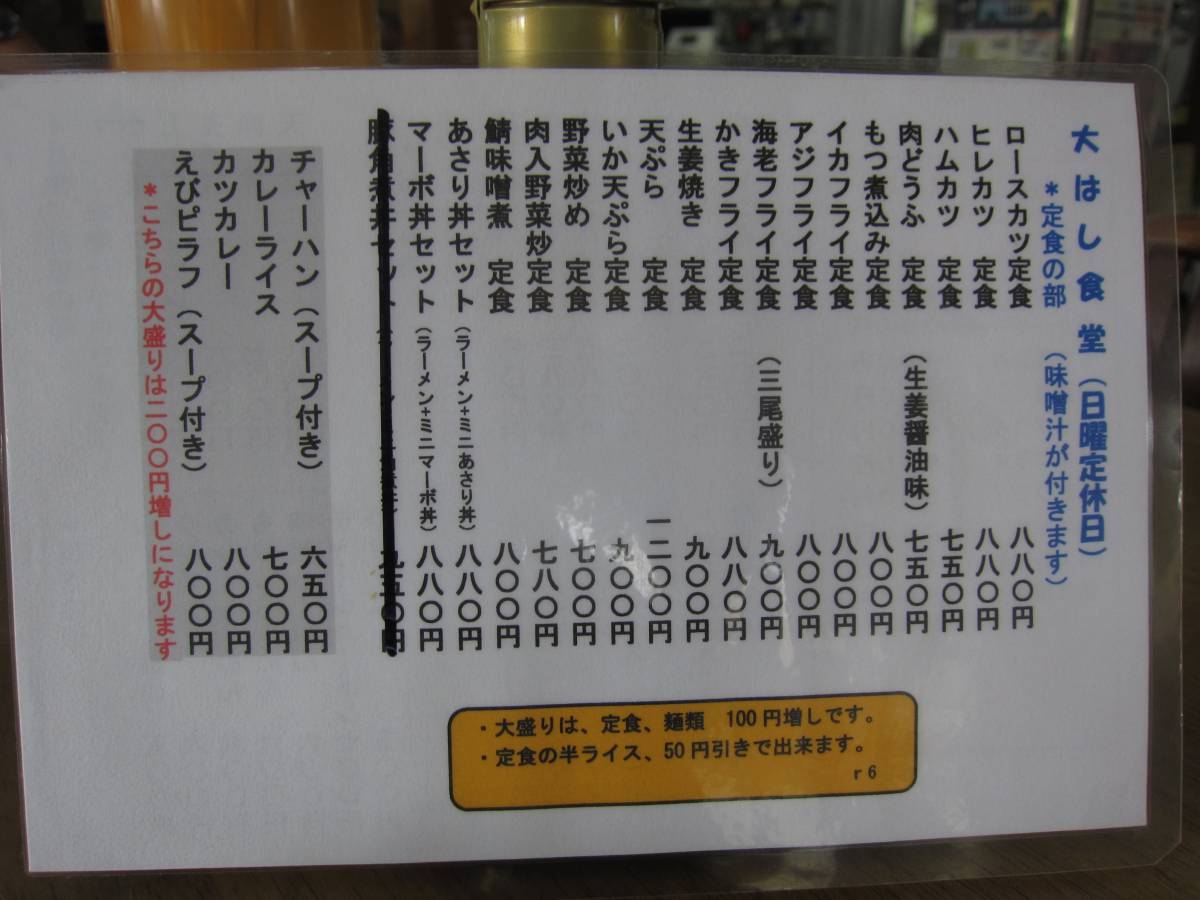 大はし食堂（日曜定休日）
＊定食の部（味噌汁が付きます）
ロースカツ定食 八八〇円
ヒレカツ 定食 八八〇円
ハムカツ 定食 七五〇円
肉どうふ 定食（生姜醤油味） 七五〇円
もつ煮込み定食 八〇〇円
イカフライ定食 八〇〇円
アジフライ定食 八〇〇円
海老フライ定食（三尾盛り） 九〇〇円
かきフライ定食 八八〇円
生姜焼き 定食 九〇〇円
天ぷら 定食 一二〇〇円
いか天ぷら定食 九〇〇円
野菜炒め 定食 七〇〇円
肉入野菜炒定食 七八〇円
鯖味噌煮 定食 八〇〇円
あさり丼セット（ラーメン+ミニあさり丼） 八八〇円
マーボ丼セット（ラーメン+ミニマーボ丼） 八八〇円
豚角煮丼セット 九五〇円
チャーハン（スープ付き） 六五〇円
カレーライス 七〇〇円
カツカレー 八〇〇円
えびピラフ（スープ付き） 八〇〇円
＊こちらの大盛りは二〇〇円増しになります
・大盛りは、定食、麺類 100円増しです。
・定食の半ライス、50円引きで出来ます。
r6